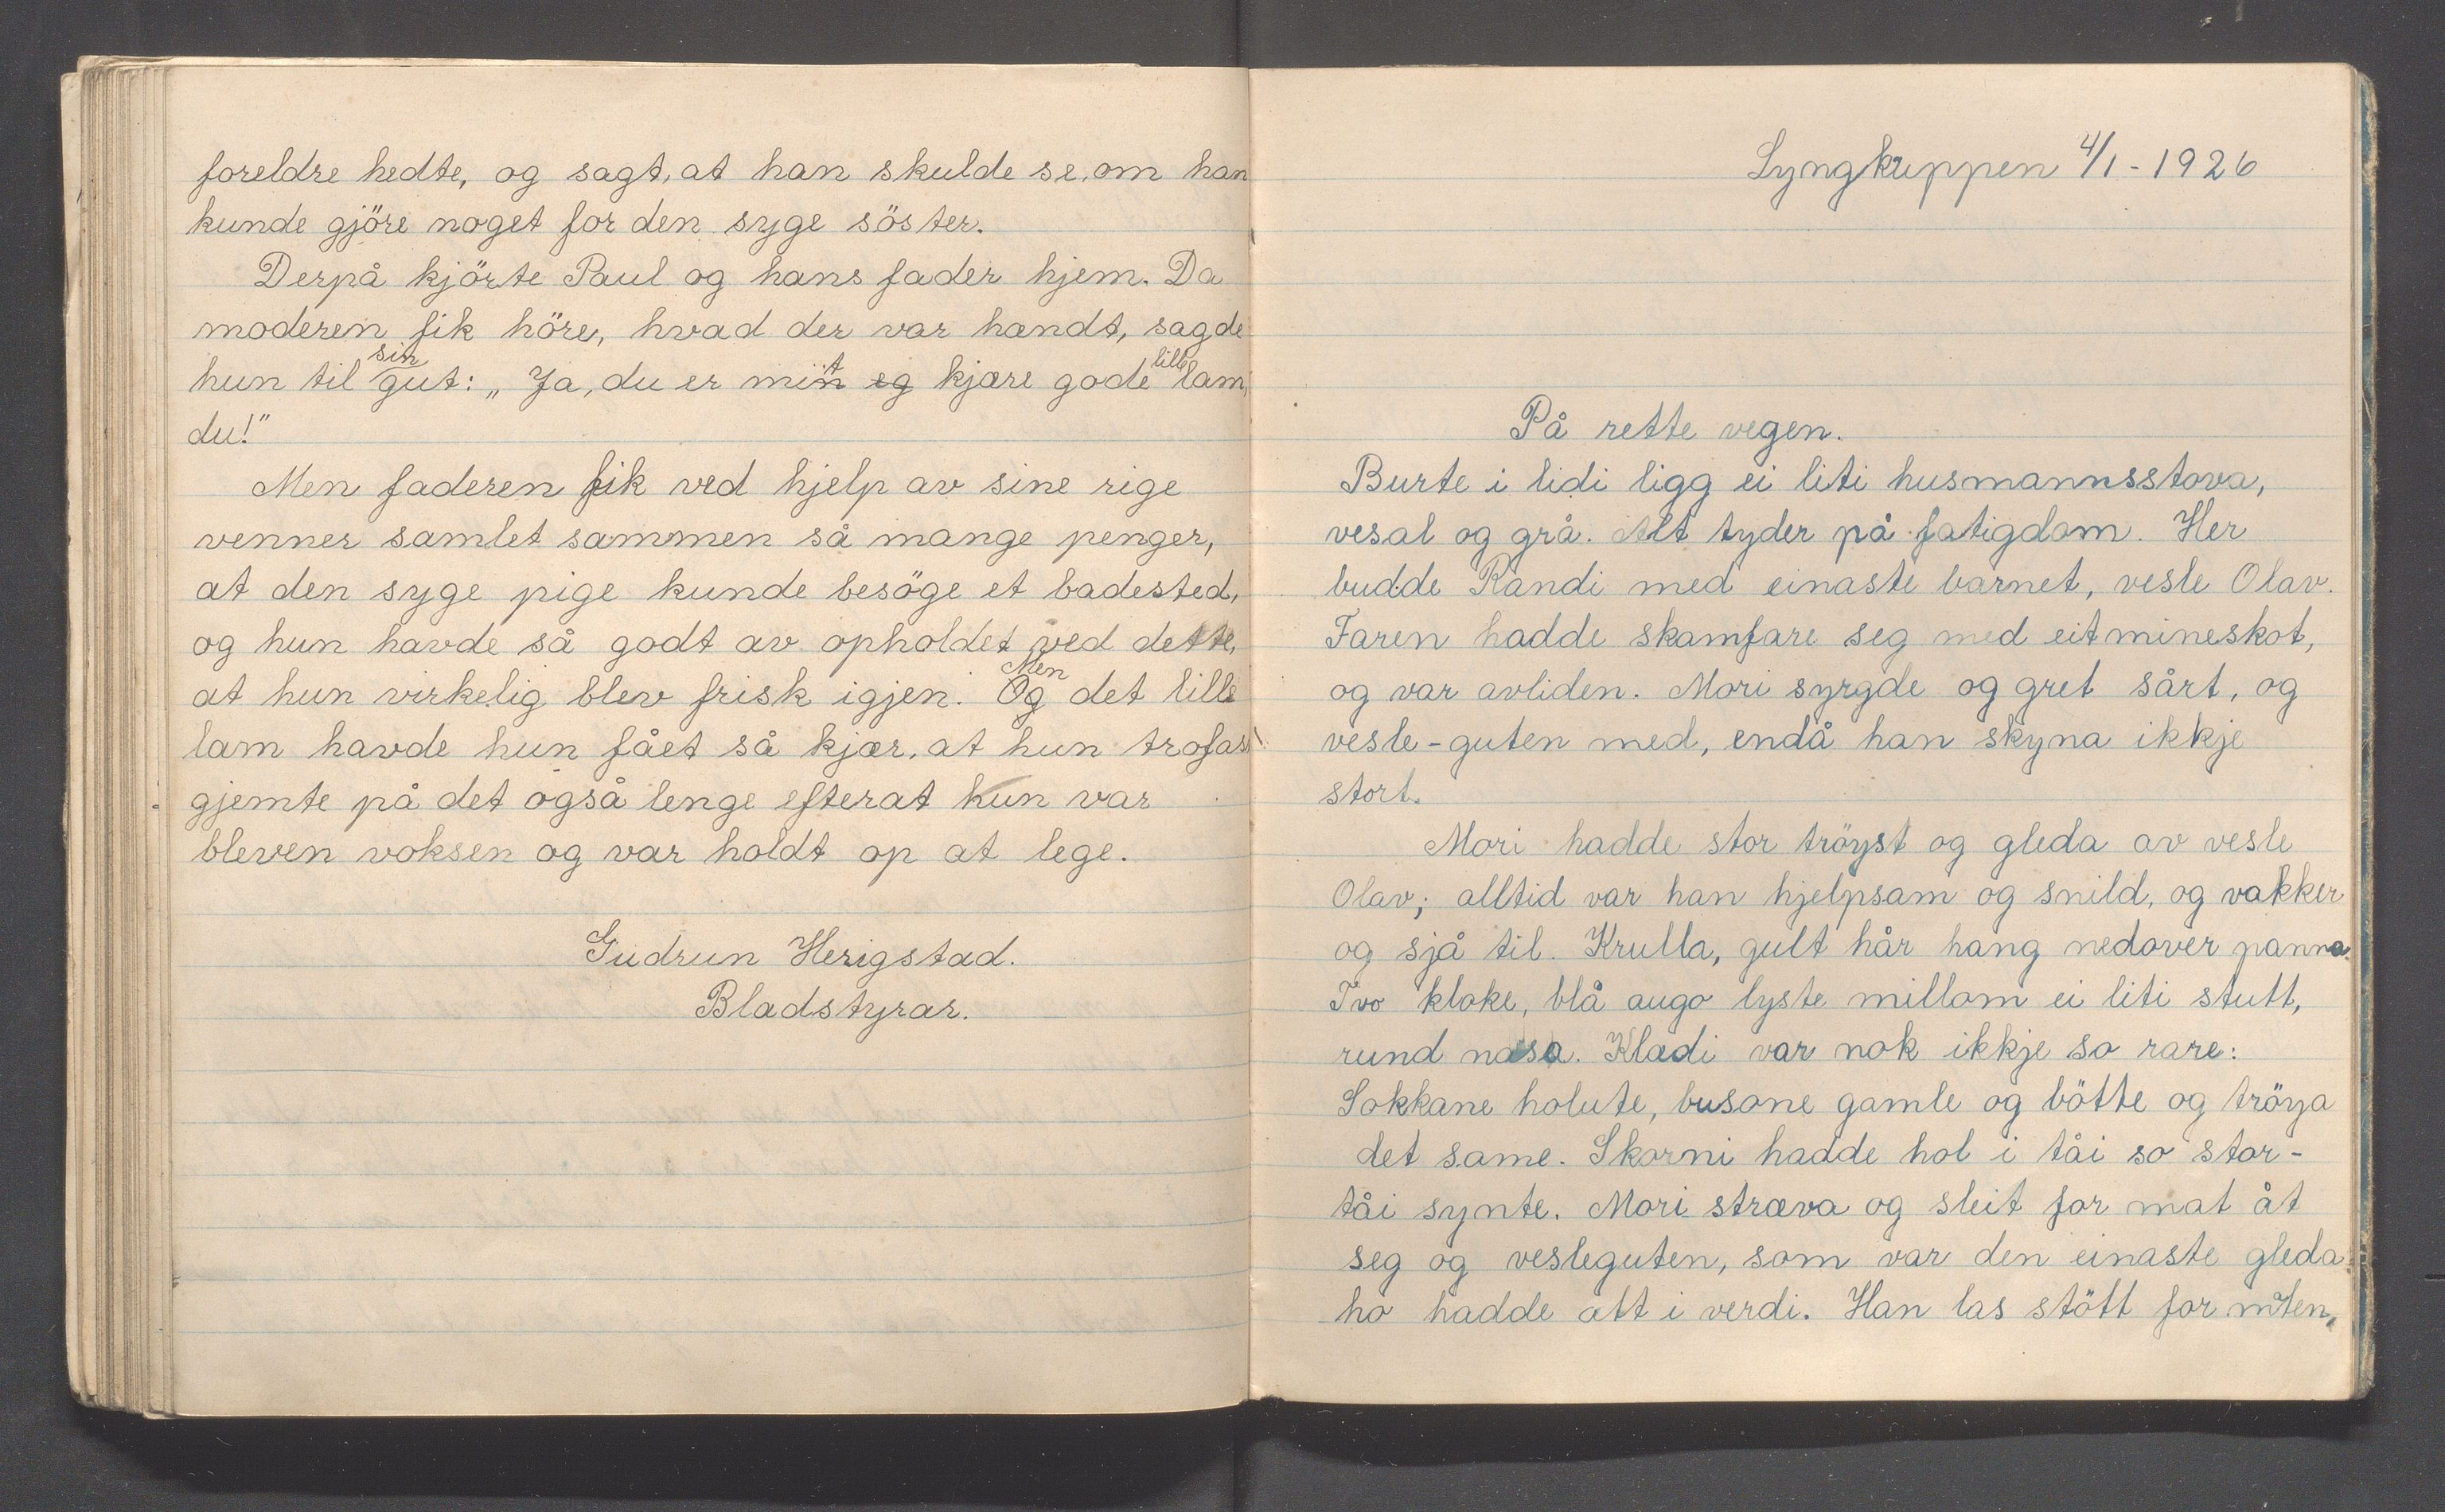 foreldre hedte, og sagt, at han skulde se, om han
kunde gjöre noget for den syge söster.
Derpå kjörte Paul og hans fader hjem. Da
moderen fik höre, hvad der var hændt, sagde
hun til sin gut: „Ja, du er mit eg kjære gode lille lam,
du!"
Men faderen fik ved hjelp av sine rige
venner samlet sammen så mange penger,
at den syge pige kunde besöge et badested,
og hun havde så godt av opholdet ved dette,
at hun virkelig blev frisk igjen. Og Men det lille
lam havde hun fået så kjær, at hun trofast
gjemte på det også lenge efterat hun var
bleven voksen og var holdt op at lege.
Gudrun Herigstad.
Bladstyrar.
Lyngkuppen 4/1-1926
På rette vegen.
Burte i lidi ligg ei liti husmannsstova,
vesal og grå. Alt tyder på fatigdom. Her
budde Randi med einaste barnet, vesle Olav.
Faren hadde skamfare seg med eit mineskot,
og var avliden. Mori syrgde og gret sårt, og
vesle-guten med, endå han skyna ikkje
stort.
Mori hadde stor tröyst og gleda av vesle
Olav; alltid var han hjelpsam og snild, og vakker
og sjå til. Krulla, gult hår hang nedover panna.
Tvo kloke, blå augo lyste millom ei liti stutt,
rund nasa. Klædi var nok ikkje so rare:
Sokkane holute, busone gamle og bötte og tröya
det same. Skorni hadde hol i tåi so stor-
tåi synte. Mori stræva og sleit for mat åt
seg og vesleguten, som var den einaste gleda
ho hadde att i verdi. Han las stött for